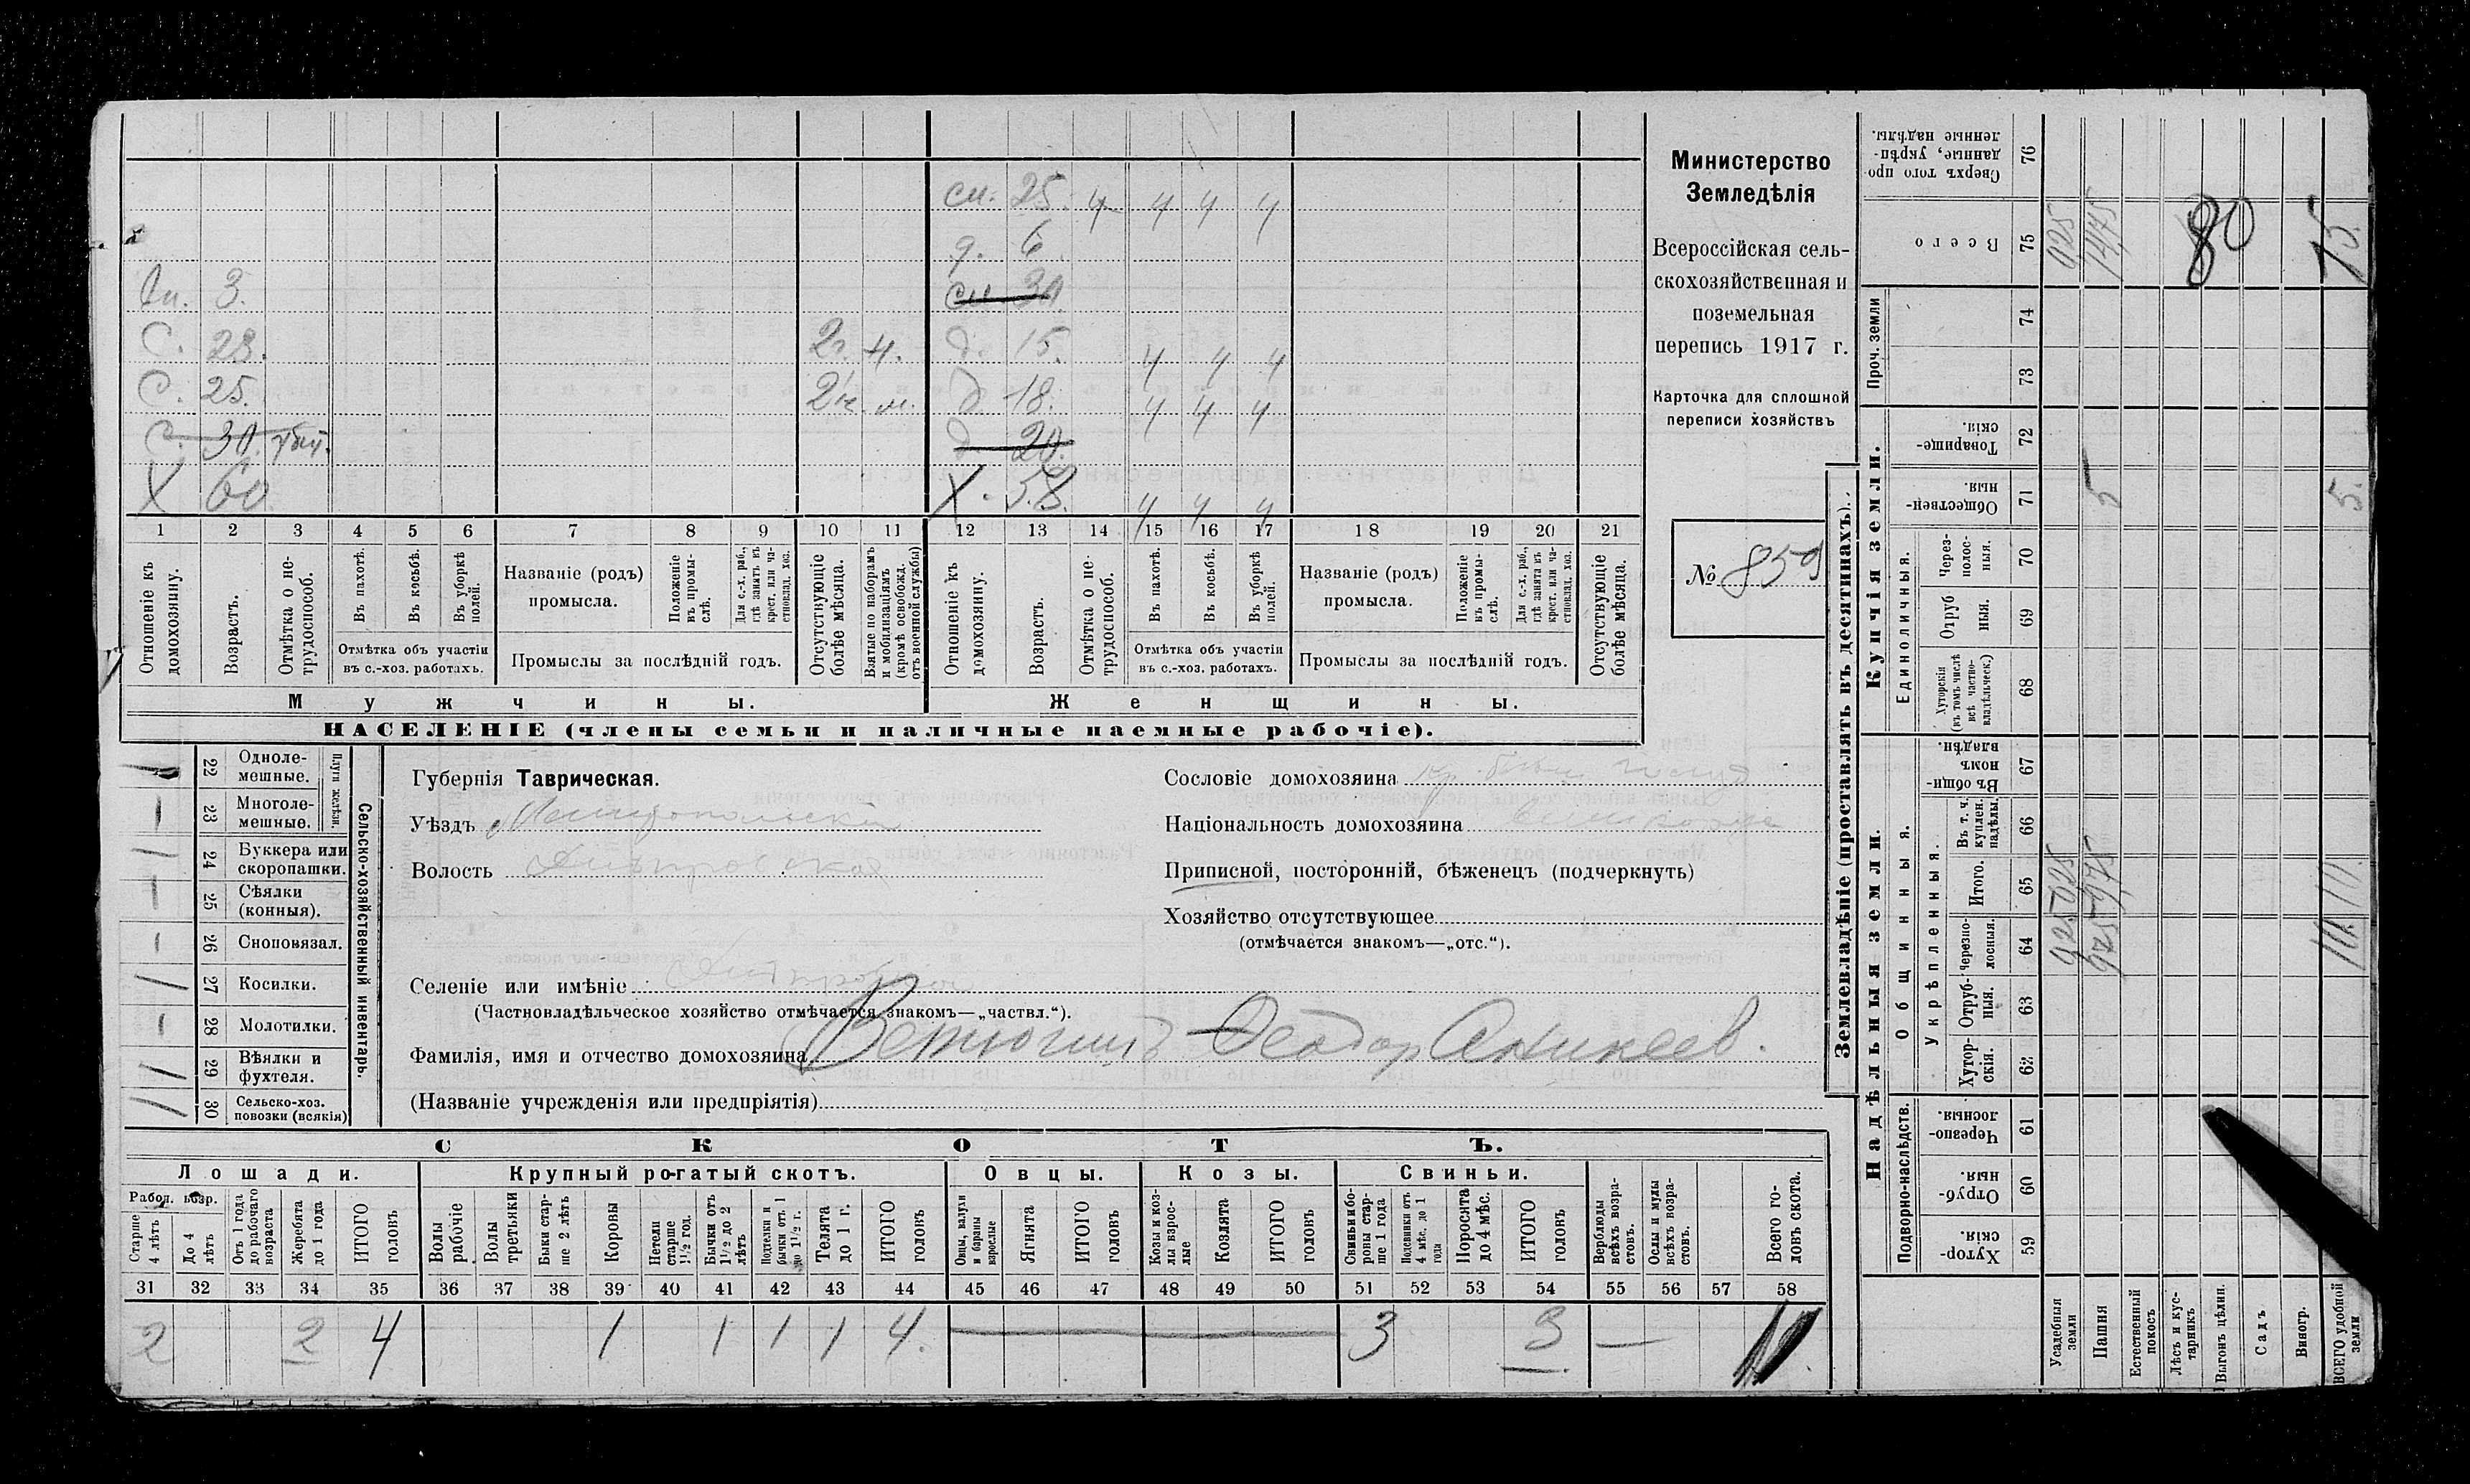 сн. 25. 4 4 4 4
д. 6
Вн. 3. сн. 30
С. 28. 2г. ч. д. 15. 4 4 4
С. 25. 2г. м. д. 18. 4 4 4
С. 30. убит. д. 20.
Х 60 Х. 58. 4 4 4
1 2 3 4 5 6 7 8 9 10 11 12 13 14 15 16 17 18 19 20 21
Отношеніе къ домохозяину.
Возрастъ.
Отмѣтка о не-трудоспособ.
Въ пахотѣ.
Въ косьбѣ.
Въ уборкѣ полей.
Отмѣтка объ участіи
въ с.-хоз. работахъ.
Названіе (родъ)
промысла.
Положеніе въ промы-слѣ.
Для с.-х. раб., гдѣ занятъ въ крест. или ча-стновлад. хоз.
Промыслы за послѣдній годъ.
Отсутствующіе болѣе мѣсяца.
Взятые по наборамъ и мобилизаціямъ (кромѣ освобожд. отъ военной службы)
Отношеніе къ домохозяину.
Возрастъ.
Отмѣтка о не-трудоспособ.
Въ пахотѣ.
Въ косьбѣ.
Въ уборкѣ полей.
Отмѣтка объ участіи
въ с.-хоз. работахъ.
Названіе (родъ)
промысла.
Положеніе въ промы-слѣ.
Для с.-х. раб., гдѣ занята въ крест. или ча-стновлад. хоз.
Промыслы за послѣдній годъ.
Отсутствующіе болѣе мѣсяца.
Мужчины. Женщины.
НАСЕЛЕНІЕ (члены семьи и наличные наемные рабочіе).
Министерство
Земледѣлія
Всероссійская сель-
скохозяйственная и
поземельная
перепись 1917 г.
Карточка для сплошной
переписи хозяйствъ
№ 859
22 Одноле-мешные.
23 Многоле-мешные.
Плуги желѣзн.
24 Буккера или скоропашки.
25 Сѣялки (конныя).
26 Сноповязал.
27 Косилки.
28 Молотилки.
29 Вѣялки и фухтеля.
30 Сельско-хоз. повозки (всякія)
Сельско-хозяйственный инвентарь.
Губернія Таврическая.
Уѣздъ Мелитопольскій
Волость Днѣпровская
Селеніе или имѣніе Днѣпровка
(Частновладѣльческое хозяйство отмѣчается знакомъ—„частвл.“).
Фамилія, имя и отчество домохозяина Ветюгинъ Феодор Аникеев.
(Названіе учрежденія или предпріятія)
Сословіе домохозяина
Національность домохозяина
Приписной, посторонній, бѣженецъ (подчеркнуть)
Хозяйство отсутствующее
(отмѣчается знакомъ—„отс.“).
СКОТЪ.
Лошади. Крупный рогатый скотъ. Овцы. Козы. Свиньи.
Рабоч. возр.
Старше 4 лѣтъ
До 4 лѣтъ
Отъ 1 года до рабочаго возраста
Жеребята до 1 года
ИТОГО головъ
Волы рабочіе
Волы третьяки
Быки стар-ше 2 лѣтъ
Коровы
Нетели старше 1½ год.
Бычки отъ 1½ до 2 лѣтъ
Подтелки и бычки отъ 1 до 1½ г.
Телята до 1 г.
ИТОГО головъ
Овцы, валухи и бараны взрослые
Ягнята
ИТОГО головъ
Козы и коз-лы взрос-лые
Козлята
ИТОГО головъ
Свиньи и бо-ровы стар-ше 1 года
Подсвинки отъ 4 мѣс. до 1 года
Поросята до 4 мѣс.
ИТОГО головъ
Верблюды всѣхъ возра-стовъ.
Ослы и мулы всѣхъ возра-стовъ.
Всего го-ловъ скота.
31 32 33 34 35 36 37 38 39 40 41 42 43 44 45 46 47 48 49 50 51 52 53 54 55 56 57 58
2 2 4 1 1 1 1 4. — 3 3 —
Землевладѣніе (проставлять въ десятинахъ).
Купчія земли.
Надѣльныя земли.
Сверхъ того про-данные, укрѣп-ленные надѣлы. 76
Всего 75 025 1475 80 15.
Проч. земли 74
73
Товарище-скія. 72
Обществен-ныя. 71 5 5.
Единоличныя.
Через-полос-ныя. 70
Отруб-ныя. 69
Хуторскія (въ томъ числѣ всѣ частно-владѣльческ.) 68
Общинныя.
Въ общи-номъ владѣн. 67
Укрѣпленныя.
Въ т. ч. куплен. надѣлы. 66
Итого. 65 025 975 10.
Черезпо-лосныя. 64 025 975 10.
Отруб-ныя. 63
Хутор-скія. 62
Подворно-наслѣдств.
Черезпо-лосныя. 61
Отруб-ныя. 60
Хутор-скія. 59
Усадебныя земли
Пашня
Естественный покосъ
Лѣсъ и кус-тарникъ
Выгонъ цѣлин.
Садъ
Виногр.
ВСЕГО удобной земли